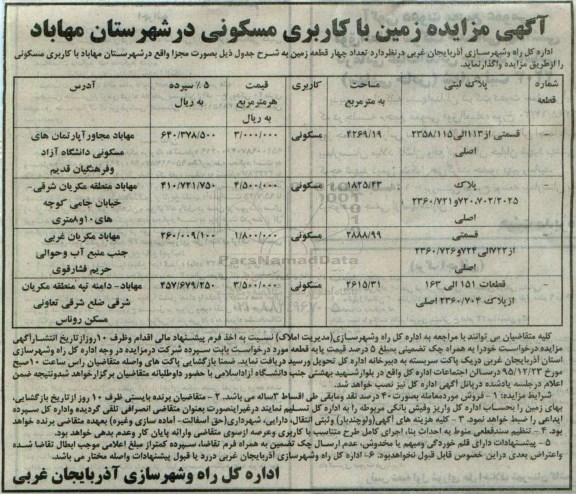 آگهی مزایده زمین با کاربری مسکونی در شهرستان مهاباد
اداره کل راه وشهرسازی آذربایجان غربی در نظر دارد تعداد چهار قطعه زمین به شرح جدول ذیل بصورت مجزا واقع در شهرستان مهاباد با کاربری مسکونی
را از طریق مزایده واگذار نماید.
شماره قطعه | پلاک ثبتی | مساحت به مترمربع | کاربری | قیمت هر مترمربع به ریال | ۵٪ سپرده به ریال | آدرس
- | قسمتی از ۱۱۳ الی ۲۳۵۸/۱۱۵ اصلی | ۴۲۶۹/۱۹ | مسکونی | ۳/۰۰۰/۰۰۰ | ۶۴۰/۳۷۸/۵۰۰ | مهاباد مجاور آپارتمان های مسکونی دانشگاه آزاد وفرهنگیان قدیم
- | پلاک ۷۲۰،۷۰۲/۲۰۲۵ و ۲۳۶۰/۷۲۱ اصلی | ۱۸۲۵/۴۳ | مسکونی | ۴/۵۰۰/۰۰۰ | ۴۱۰/۷۲۱/۷۵۰ | مهاباد منطقه مکریان شرقی- خیابان جامی کوچه های ۱۰ و ۸ متری
- | قسمتی از ۷۲۲ الی ۷۲۴ و ۲۳۶۰/۷۲۶ اصلی | ۲۸۸۸/۹۹ | مسکونی | ۱/۸۰۰/۰۰۰ | ۲۶۰/۰۰۹/۱۰۰ | مهاباد مکریان غربی جنب منبع آب وحوالی حریم فشارقوی
- | قطعات ۱۵۱ الی ۱۶۳ از پلاک ۲۳۶۰/۷۰۴ اصلی | ۲۶۱۵/۳۱ | مسکونی | ۳/۵۰۰/۰۰۰ | ۴۵۷/۶۷۹/۲۵۰ | مهاباد- دامنه تپه منطقه مکریان شرقی ضلع شرقی تعاونی مسکن روناس
ParsNamadData
کلیه متقاضیان می توانند با مراجعه به اداره کل راه وشهرسازی(مدیریت املاک) نسبت به اخذ فرم پیشنهاد مالی اقدام وظرف ۱۰ روز از تاریخ انتشار آگهی
مزایده درخواست خود را به همراه چک تضمینی بمبلغ ۵ درصد قیمت پایه قطعه مورد درخواست بابت سپرده شرکت در مزایده در وجه اداره کل راه وشهرسازی
استان آذربایجان غربی در یک پاکت سربسته به دبیرخانه اداره کل تحویل و رسید دریافت نماید. ضمنا بازگشایی پاکت های واصله متقاضیان راس ساعت ۱۰ صبح
مورخ ۹۵/۱۲/۲۳ در سالن اجتماعات اداره کل واقع در بلوار شهید بهشتی جنب دانشگاه آزاد اسلامی با حضور داوطلبانه متقاضیان برگزار خواهد شد ونتیجه ضمن
اعلام در جلسه یادشده در پانل آگهی اداره کل نیز نصب خواهد شد.
شرایط مزایده: ۱- فروش مورد معامله بصورت ۴۰ درصد نقد ومابقی طی اقساط ۳ ساله می باشد. ۲- متقاضیان برنده بایستی ظرف ۱۰ روز از تاریخ بازگشایی،
بهای زمین را بحساب اداره کل واریز وفیش بانکی مربوطه را به اداره کل تسلیم نمایند در غیراینصورت بعنوان متقاضی انصرافی تلقی گردیده واداره کل سپرده
ابداعی را ضبط خواهد نمود. ۳- کلیه هزینه های آگهی(ولو چندبار) وثبتی انتقال، دارایی، شهرداری(حق آسفالت، آماده سازی وغیره) بعهده متقاضی برنده خواهد
بود. ۴- تنظیم سند قطعی منوط به احداث بنا، اجرای کامل طرح متناسب با کاربری وعرصه از سوی متقاضی وارائه پایان کار وعدم بدهی خواهد بود.
۵- پیشنهادات دارای قلم خوردگی ومبهم یا مخدوش، عدم ارسال چک تضمین به همراه فرم تقاضا، سپرده کمتراز مبلغ اعلامی موجب ابطال تقاضا شده
واعتراض بعدی در این خصوص قابل قبول نخواهد بود. ۶- اداره کل راه وشهرسازی آذربایجان غربی در رد یا قبول پیشنهادات واصله مختار می باشد.
اداره کل راه وشهرسازی آذربایجان غربی